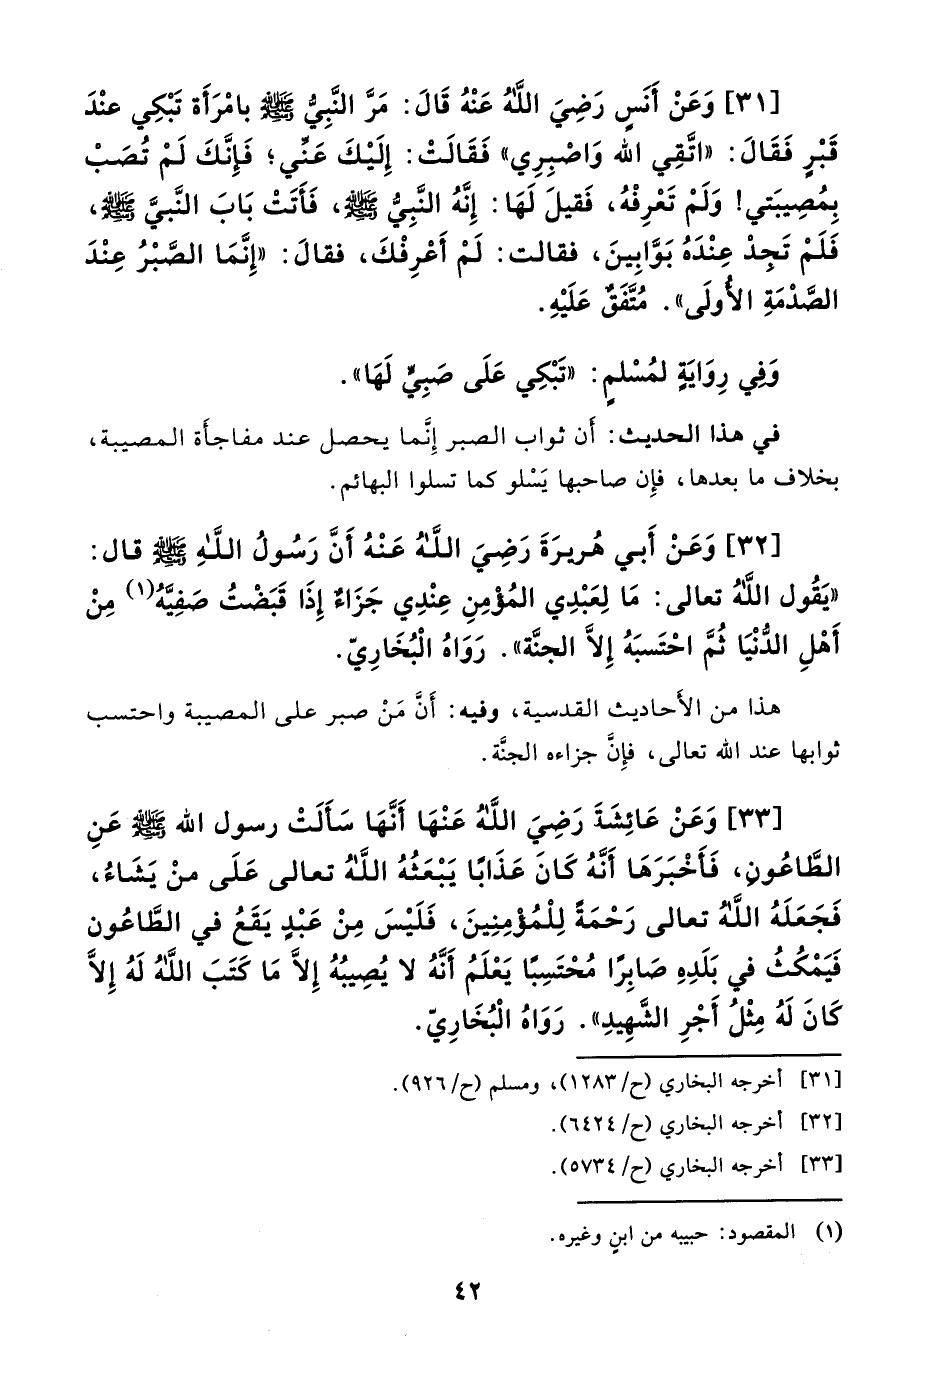 [٣١] وَعَنْ أَنَسٍ رَضِيَ اللَّهُ عَنْهُ قَالَ: مَرَّ النَّبِيُّ ﷺ بامْرَأَة تَبْكِي عنْدَ
قَبْرٍ فَقَالَ: «اتَّقِي الله وَاصْبِرِي» فَقَالَتْ: إِلَيْكَ عَنِّي؛ فَإنَّكَ لَمْ تُصَبْ
بِمُصِيبَتي! وَلَمْ تَعْرِفْهُ، فَقيلَ لَهَا: إِنَّهُ النَّبِيُّ ﷺ، فَأَتَتْ بَابَ النَّبيَّ ﷺ،
فَلَمْ تَجِدْ عِنْدَهُ بَوَّابِينَ، فقالت: لَمْ أَعْرِفْكَ، فقالَ: «إِنَّمَا الصَّبْرُ عِنْدَ
الصَّدْمَةِ الأُولَى». مُتَّفَقٌ عَلَيْهِ.
وَفِي رِوَايَةٍ لمُسْلمٍ: «تَبْكِي عَلَى صَبِيٍّ لَهَا».
في هذا الحديث: أن ثواب الصبر إنَّما يحصل عند مفاجأة المصيبة،
بخلاف ما بعدها، فإن صاحبها يَسْلو كما تسلوا البهائم.
[٣٢] وَعَنْ أَبي هُرِيرَةَ رَضِيَ اللَّهُ عَنْهُ أَنَّ رَسُولُ اللَّهِ ﷺ قال:
«يَقُول اللَّهُ تعالى: مَا لِعَبْدِي المُؤْمِنِ عِنْدِي جَزَاءٌ إِذَا قَبَضْتُ صَفِيَّهُ(١) مِنْ
أَهْلِ الدُّنْيَا ثُمَّ احْتَسبَهُ إِلاَّ الجنَّة». رَوَاهُ الْبُخَارِيّ.
هذا من الأحاديث القدسية، وفيه: أنَّ مَنْ صبر على المصيبة واحتسب
ثوابها عند الله تعالى، فإنَّ جزاءه الجنَّة.
[٣٣] وَعَنْ عَائِشَةَ رَضِيَ اللَّهُ عَنْهَا أَنَّهَا سَأَلَتْ رسول الله ﷺ عَنِ
الطَّاعُونِ، فَأَخْبَرَهَا أَنَّهُ كَانَ عَذَابًا يَبْعَثُهُ اللَّهُ تعالى عَلَى منْ يَشَاءُ،
فَجَعَلَهُ اللَّهُ تعالى رَحْمَةً لِلْمُؤْمِنِينَ، فَلَيْسَ مِنْ عَبْدٍ يَقَعُ في الطَّاعُون
فَيَمْكُثُ في بَلَدِهِ صَابِرًا مُحْتَسِبًا يَعْلَمُ أَنَّهُ لا يُصِيبُهُ إِلاَّ مَا كَتَبَ اللَّهُ لَهُ إِلاَّ
كَانَ لَهُ مِثْلُ أَجْرِ الشَّهِيدِ». رَوَاهُ الْبُخَارِيّ.
[٣١] أخرجه البخاري (ح/١٢٨٣)، ومسلم (ح/٩٢٦).
[٣٢] أخرجه البخاري (ح/٦٤٢٤).
[٣٣] أخرجه البخاري (ح/٥٧٣٤).
(١) المقصود: حبيبه من ابنٍ وغيره.
٤٢